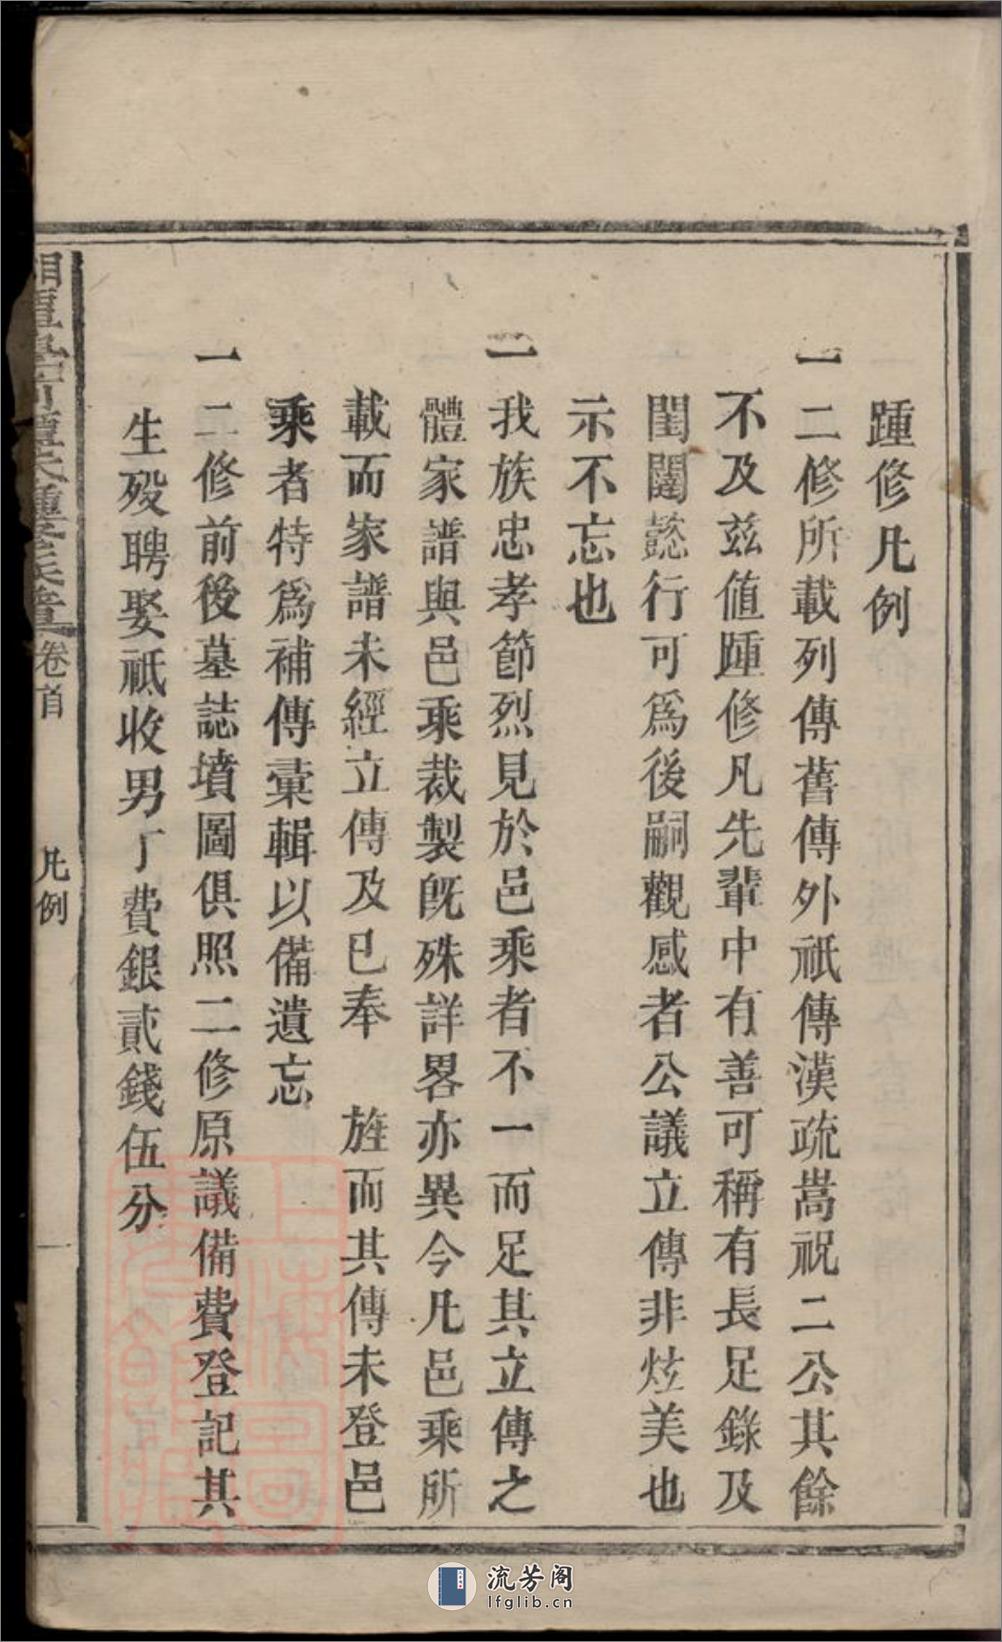 踵修凡例
一二修所載列傳舊傳外祇傳漢疏嵩祝二公其餘
不及兹值踵修凡先輩中有善可稱有長足錄及
閨闥懿行可爲後嗣觀感者公議立傳非炫美也
示不忘也
一我族忠孝節烈見於邑乘者不一而足其立傳之
體家譜與邑乘裁製旣殊詳畧亦異今凡邑乘所
載而家譜未經立傳及已奉　旌而其傳未登邑
乘者特爲補傳彙輯以備遺忘
一二修前後墓誌墳圖俱照二修原議備費登記其
生殁聘娶祇收男丁費銀貳錢伍分
卷首
凡例
一
流芳阁
lfglib.cn